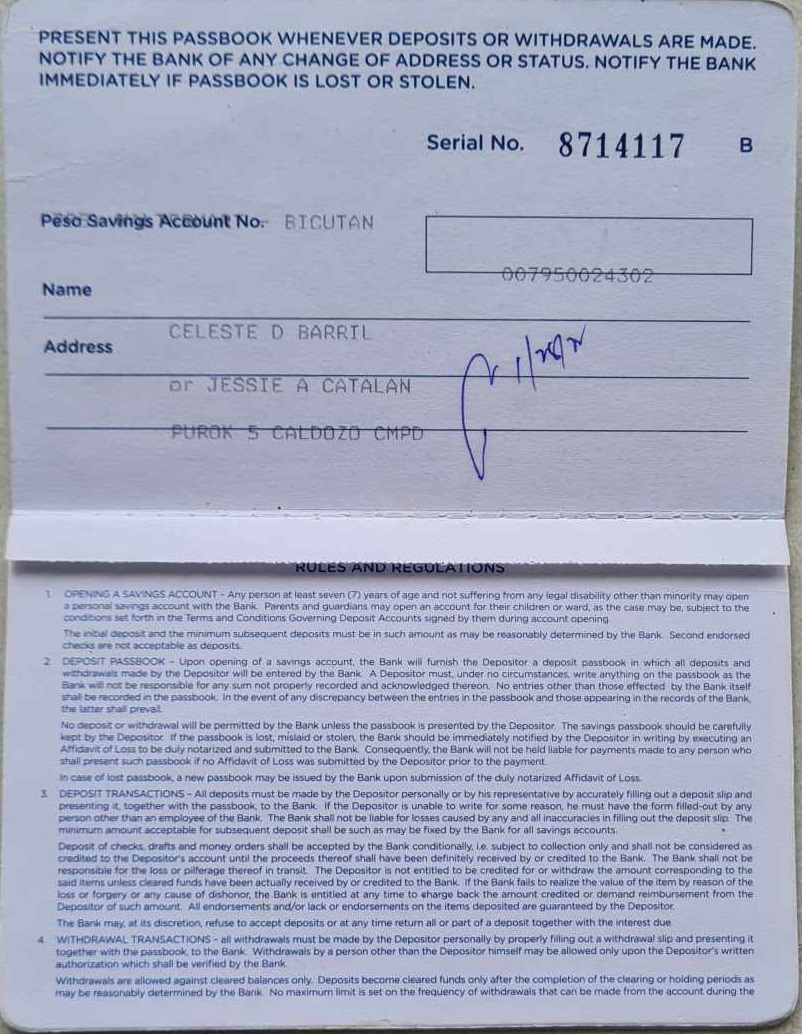 PRESENT THIS PASSBOOK WHENEVER DEPOSITS OR WITHDRAWALS ARE MADE.
NOTIFY THE BANK OF ANY CHANGE OF ADDRESS OR STATUS. NOTIFY THE BANK
IMMEDIATELY IF PASSBOOK IS LOST OR STOLEN.
Serial No. 8714117 B
Peso Savings Account No. BICUTAN
007950024302
Name
CELESTE D BARRIL
Address
or JESSIE A CATALAN
PUROK 5 CALDOZO CMPD
RULES AND REGULATIONS
1. OPENING A SAVINGS ACCOUNT – Any person at least seven (7) years of age and not suffering from any legal disability other than minority may open
a personal savings account with the Bank. Parents and guardians may open an account for their children or ward, as the case may be, subject to the
conditions set forth in the Terms and Conditions Governing Deposit Accounts signed by them during account opening.
The initial deposit and the minimum subsequent deposits must be in such amount as may be reasonably determined by the Bank. Second endorsed
checks are not acceptable as deposits.
2. DEPOSIT PASSBOOK – Upon opening of a savings account, the Bank will furnish the Depositor a deposit passbook in which all deposits and
withdrawals made by the Depositor will be entered by the Bank. A Depositor must, under no circumstances, write anything on the passbook as the
Bank will not be responsible for any sum not properly recorded and acknowledged thereon. No entries other than those effected by the Bank itself
shall be recorded in the passbook. In the event of any discrepancy between the entries in the passbook and those appearing in the records of the Bank,
the latter shall prevail.
No deposit or withdrawal will be permitted by the Bank unless the passbook is presented by the Depositor. The savings passbook should be carefully
kept by the Depositor. If the passbook is lost, mislaid or stolen, the Bank should be immediately notified by the Depositor in writing by executing an
Affidavit of Loss to be duly notarized and submitted to the Bank. Consequently, the Bank will not be held liable for payments made to any person who
shall present such passbook if no Affidavit of Loss was submitted by the Depositor prior to the payment.
In case of lost passbook, a new passbook may be issued by the Bank upon submission of the duly notarized Affidavit of Loss.
3. DEPOSIT TRANSACTIONS – All deposits must be made by the Depositor personally or by his representative by accurately filling out a deposit slip and
presenting it, together with the passbook, to the Bank. If the Depositor is unable to write for some reason, he must have the form filled-out by any
person other than an employee of the Bank. The Bank shall not be liable for losses caused by any and all inaccuracies in filling out the deposit slip. The
minimum amount acceptable for subsequent deposit shall be such as may be fixed by the Bank for all savings accounts.
Deposit of checks, drafts and money orders shall be accepted by the Bank conditionally, i.e. subject to collection only and shall not be considered as
credited to the Depositor's account until the proceeds thereof shall have been definitely received by or credited to the Bank. The Bank shall not be
responsible for the loss or pilferage thereof in transit. The Depositor is not entitled to be credited for or withdraw the amount corresponding to the
said items unless cleared funds have been actually received by or credited to the Bank. If the Bank fails to realize the value of the item by reason of the
loss or forgery or any cause of dishonor, the Bank is entitled at any time to charge back the amount credited or demand reimbursement from the
Depositor of such amount. All endorsements and/or lack or endorsements on the items deposited are guaranteed by the Depositor.
The Bank may, at its discretion, refuse to accept deposits or at any time return all or part of a deposit together with the interest due.
4. WITHDRAWAL TRANSACTIONS – all withdrawals must be made by the Depositor personally by properly filling out a withdrawal slip and presenting it
together with the passbook, to the Bank. Withdrawals by a person other than the Depositor himself may be allowed only upon the Depositor's written
authorization which shall be verified by the Bank.
Withdrawals are allowed against cleared balances only. Deposits become cleared funds only after the completion of the clearing or holding periods as
may be reasonably determined by the Bank. No maximum limit is set on the frequency of withdrawals that can be made from the account during the